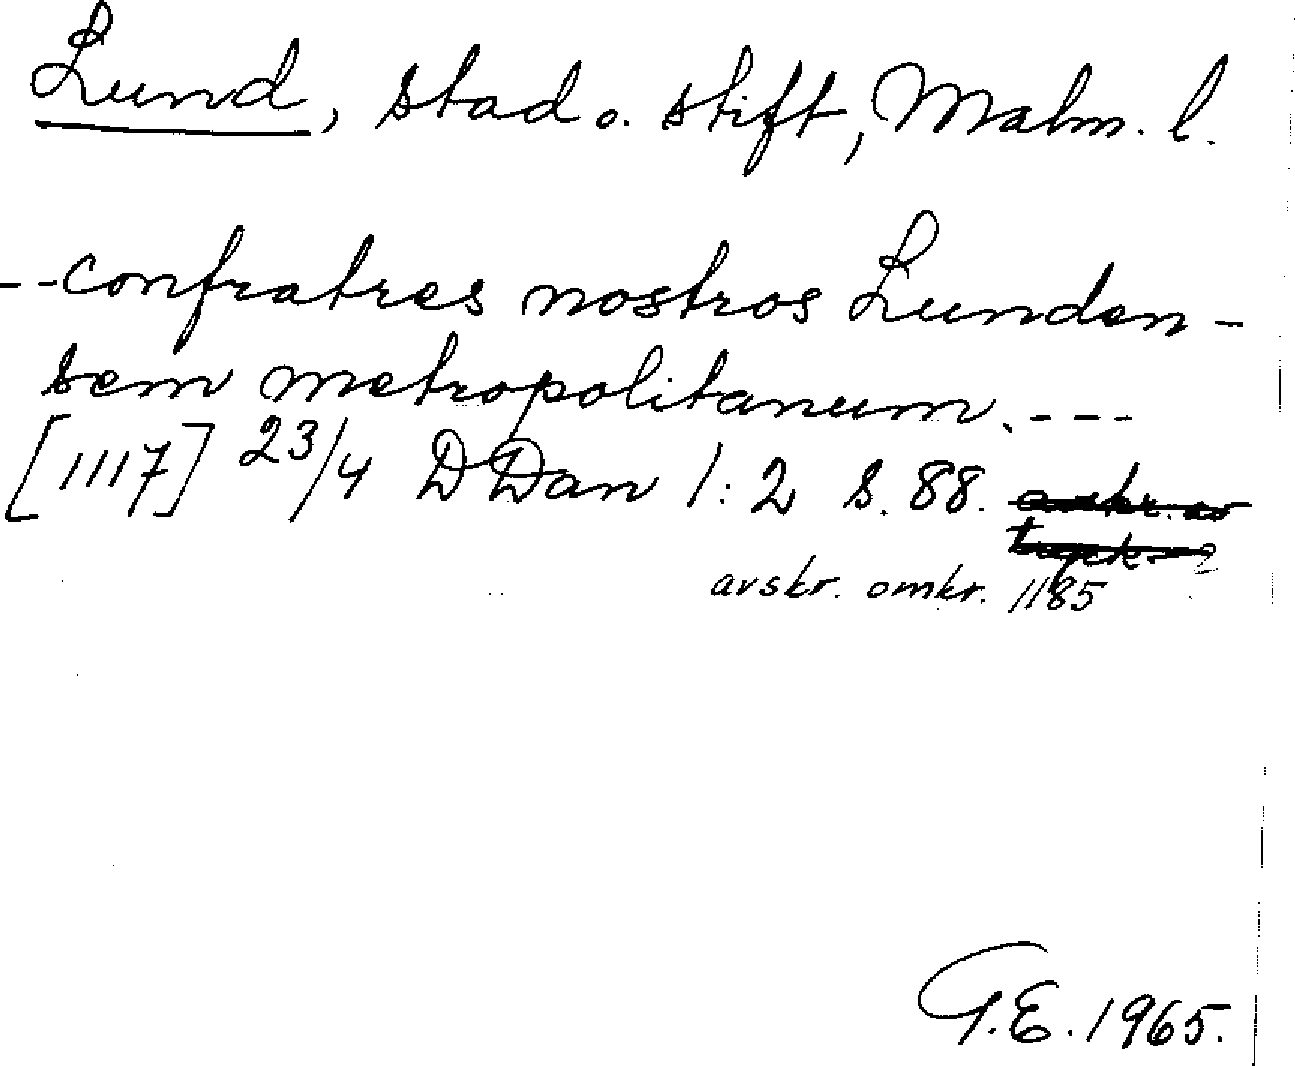 Lund, stad o. stift, Malm. l.
--confratres nostros Lunden-
sem metropolitanum. ---
[1117] 23/4 DDan 1:2 s. 88.
avskr. omkr. 1185
G.E. 1965.